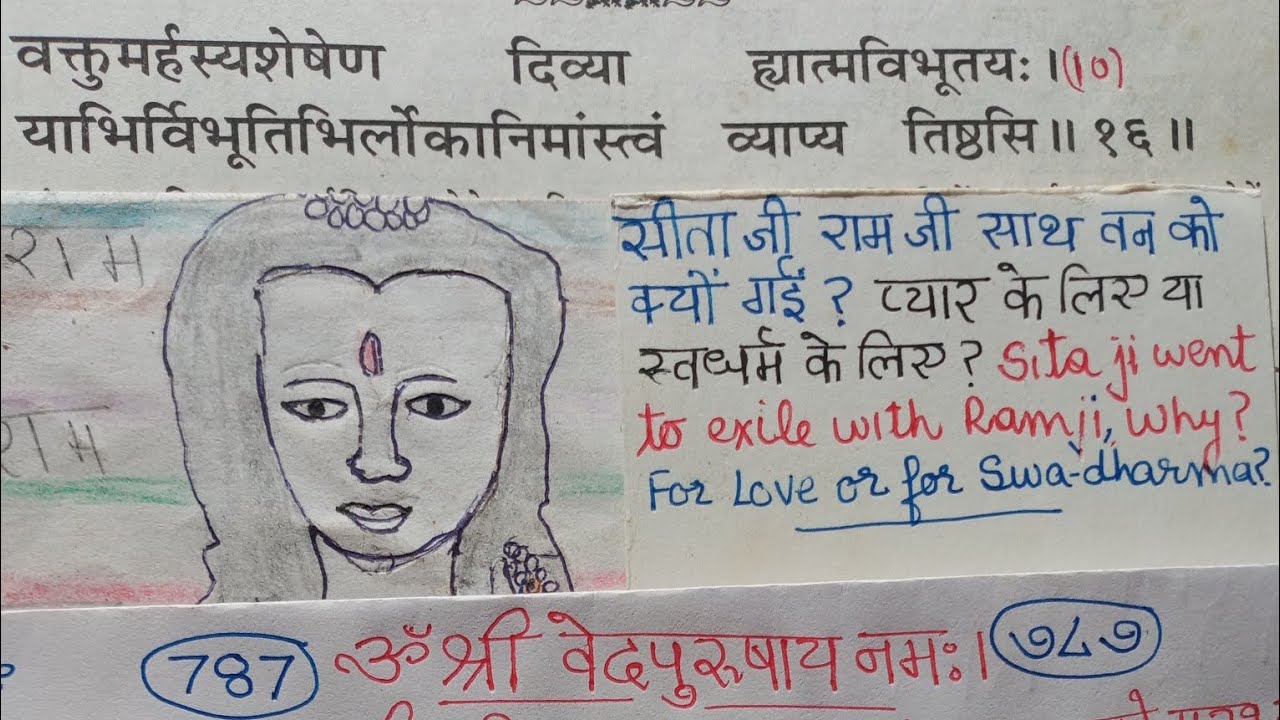 वक्तुमर्हस्यशेषेण दिव्या ह्यात्मविभूतयः।(१०)
याभिर्विभूतिभिर्लोकानिमांस्त्वं व्याप्य तिष्ठसि॥ १६॥
राम
राम
सीता जी राम जी साथ वन को
क्यों गईं? प्यार के लिए या
स्वधर्म के लिए? Sita ji went
to exile with Ramji, why?
For Love or for Swa-dharma?
787 ॐ श्री वेदपुरुषाय नमः। ७८७